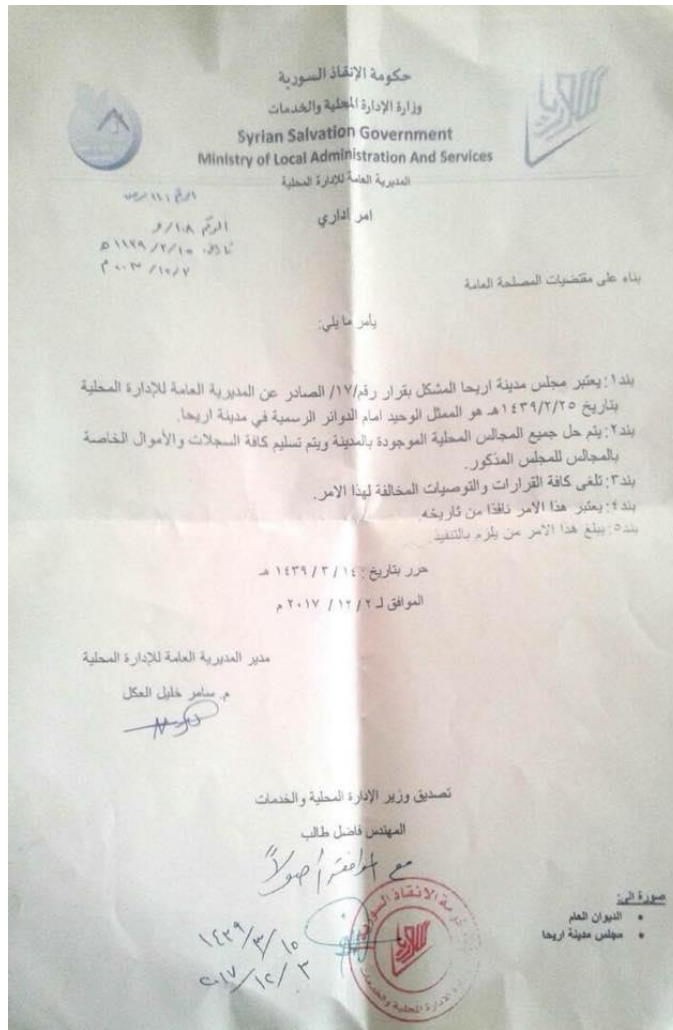 حكومة الإنقاذ السورية
وزارة الإدارة المحلية والخدمات
Syrian Salvation Government
Ministry of Local Administration And Services
المديرية العامة للإدارة المحلية
الرقم
امر اداري
الرقم ١٠٨/و
بناء على مقتضيات المصلحة العامة
يأمر مايلي:
بند١: يعتبر مجلس مدينة اريحا المشكل بقرار رقم/١٧/ الصادر عن المديرية العامة للإدارة المحلية
بتاريخ ١٤٣٩/٢/٢٥هـ هو الممثل الوحيد امام الدوائر الرسمية في مدينة اريحا.
بند٢: يتم حل جميع المجالس المحلية الموجودة بالمدينة ويتم تسليم كافة السجلات والأموال الخاصة
بالمجالس للمجلس المذكور.
بند٣: تلغى كافة القرارات والتوصيات المخالفة لهذا الامر.
بند٤: يعتبر هذا الامر نافذا من تاريخه.
بند٥: يبلغ هذا الامر من يلزم بالتنفيذ.
حرر بتاريخ: ١٤ / ٣ / ١٤٣٩ هـ
الموافق لـ ٢ / ١٢ / ٢٠١٧ م
مدير المديرية العامة للإدارة المحلية
م. سامر خليل العكل
تصديق وزير الإدارة المحلية والخدمات
المهندس فاضل طالب
مع الموافقة أصولاً
١٤٣٩/٣/١٥
٢٠١٧/١٢/٣
صورة الى:
• الديوان العام
• مجلس مدينة اريحا